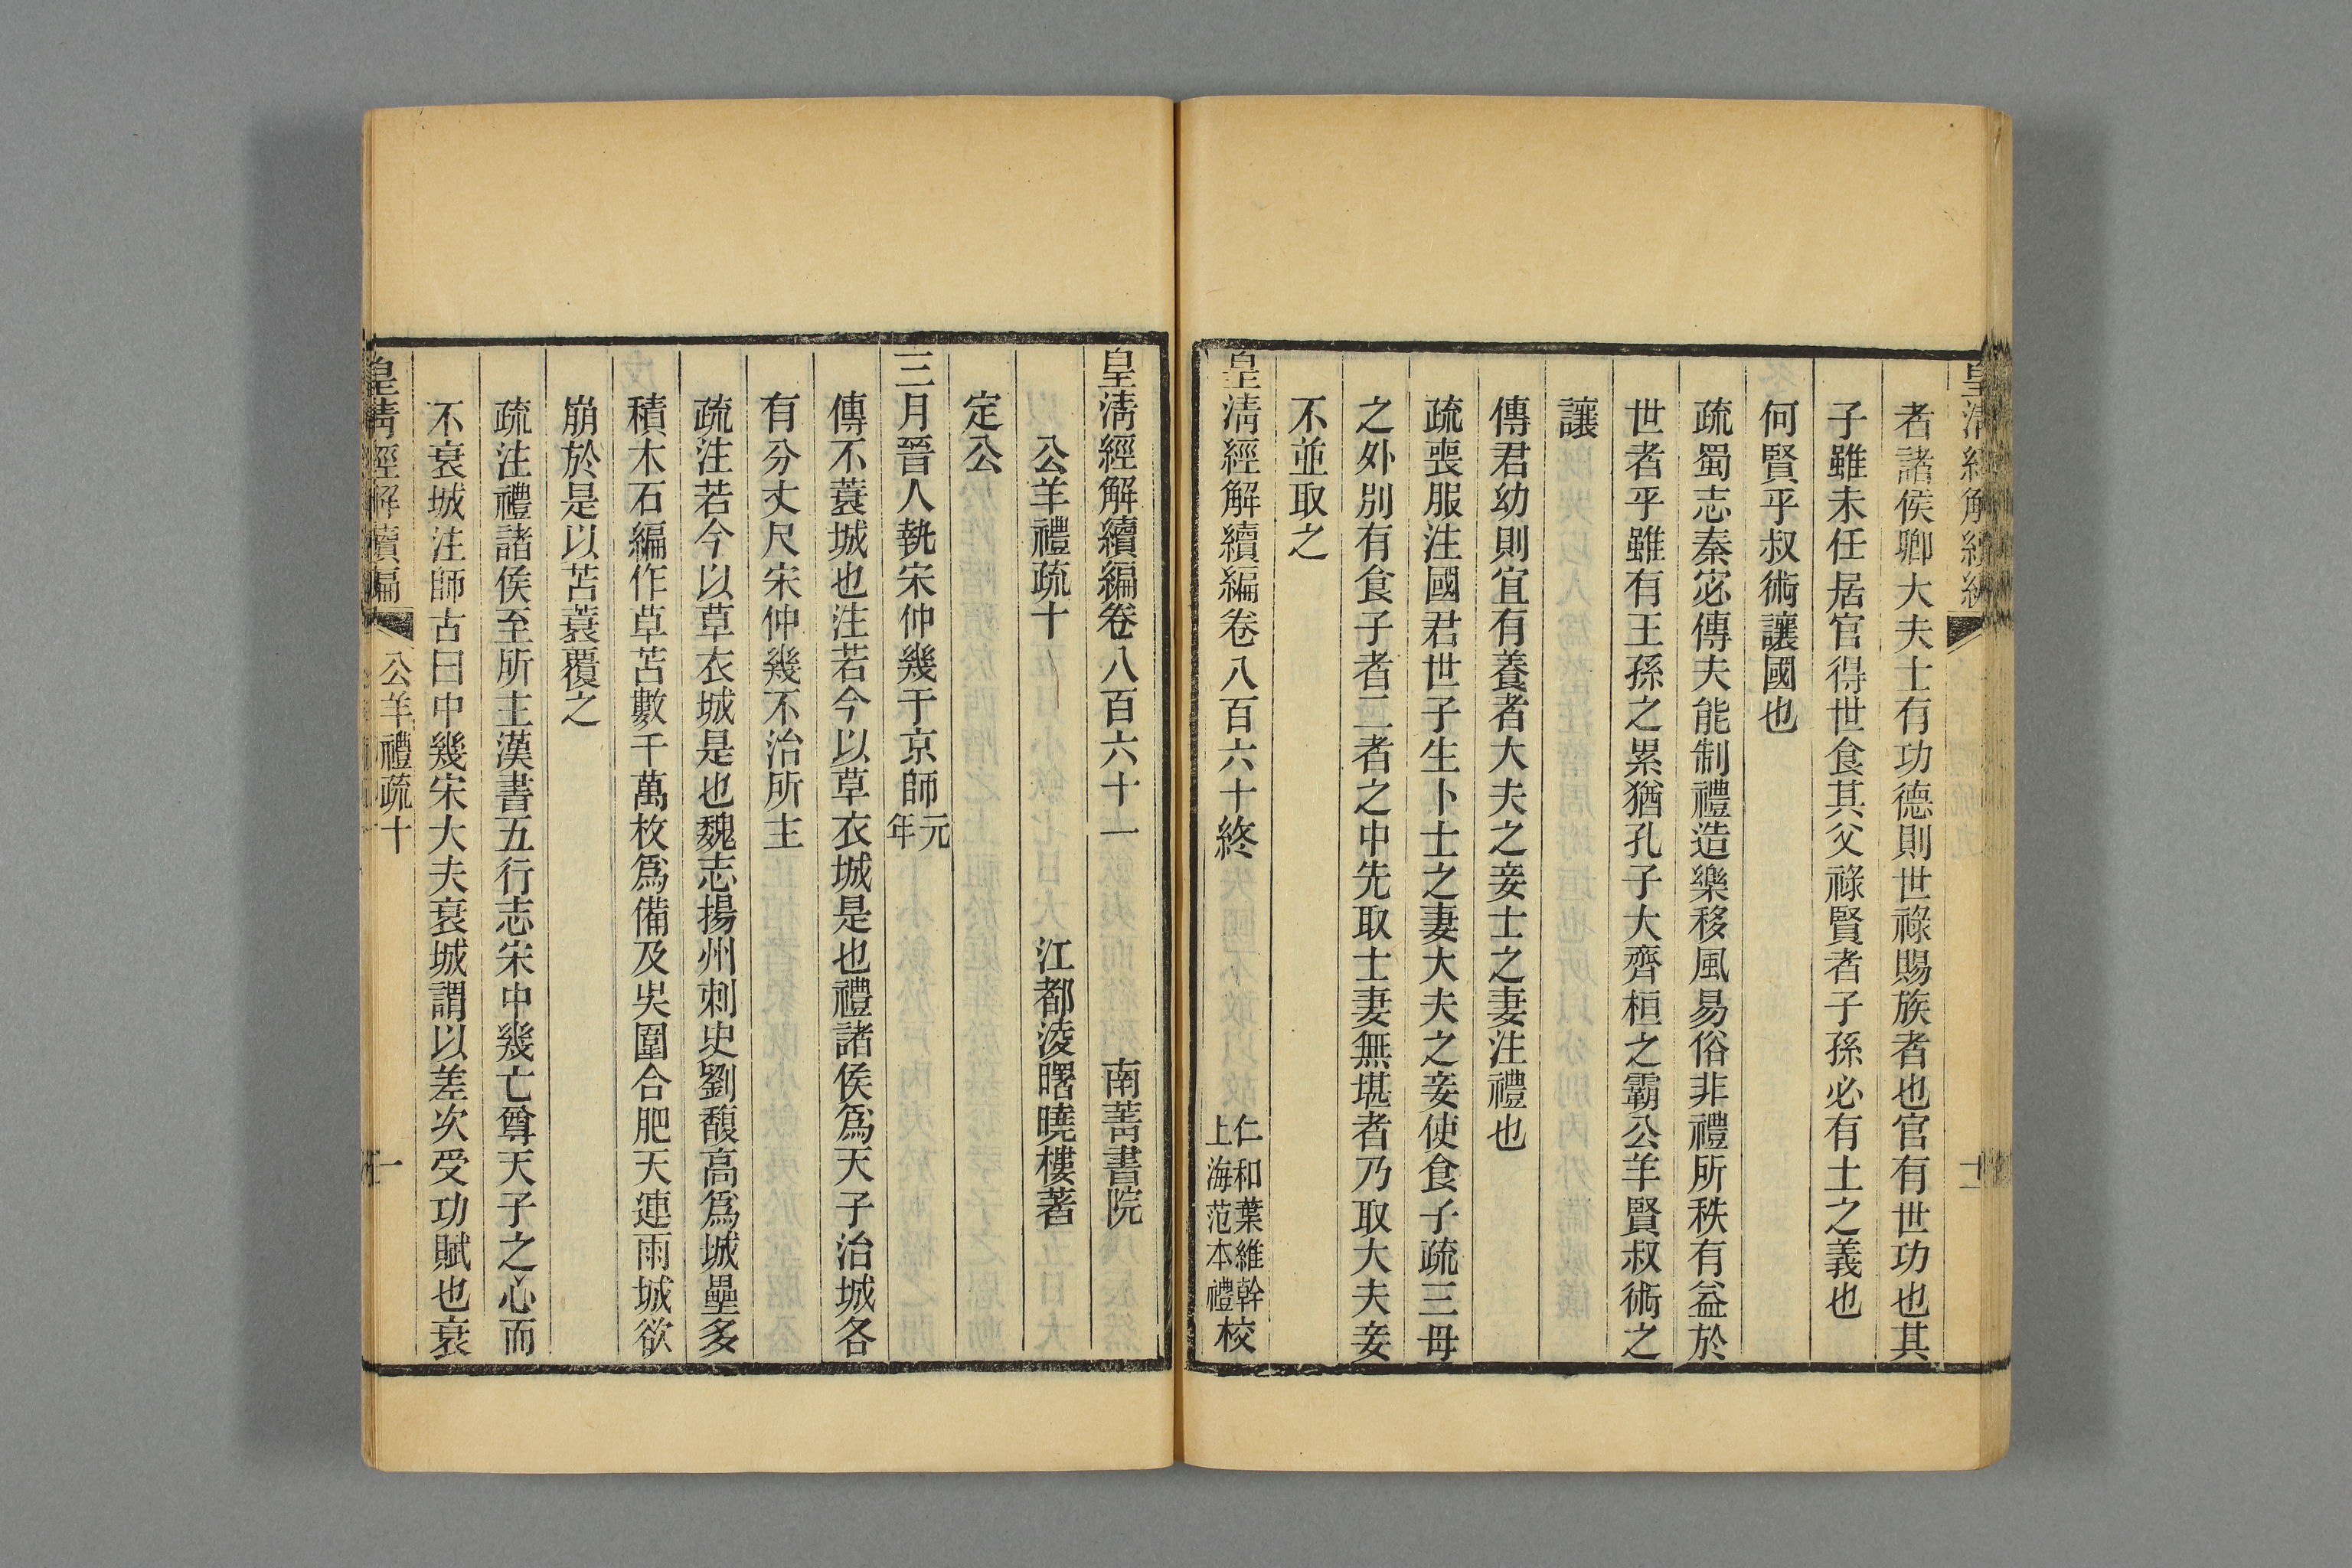 者諸侯卿大夫士有功德則世祿賜族者也官有世功也其
子雖未任居官得世食其父祿賢者子孫必有土之義也
何賢乎叔術讓國也
疏蜀志秦宓傳夫能制禮造樂移風易俗非禮所秩有益於
世者乎雖有王孫之累猶孔子大齊桓之霸公羊賢叔術之
讓
傳君幼則宜有養者大夫之妾士之妻注禮也
疏喪服注國君世子生卜士之妻大夫之妾使食子疏三母
之外別有食子者二者之中先取士妻無堪者乃取大夫妾
不並取之
皇清經解續編卷八百六十終
仁和葉維幹
上海范本禮校
皇清經解續編卷八百六十一
南菁書院
公羊禮疏十
江都淩曙曉樓著
定公
三月晉人執宋仲幾于京師元年
傳不蓑城也注若今以草衣城是也禮諸侯爲天子治城各
有分丈尺宋仲幾不治所主
疏注若今以草衣城是也魏志揚州刺史劉馥高爲城壘多
積木石編作草苫數千萬枚爲備及吳圍合肥天連雨城欲
崩於是以苫蓑覆之
疏注禮諸侯至所主漢書五行志宋中幾亡尊天子之心而
不衰城注師古曰中幾宋大夫衰城謂以差次受功賦也衰
皇清經解續編
公羊禮疏十
一